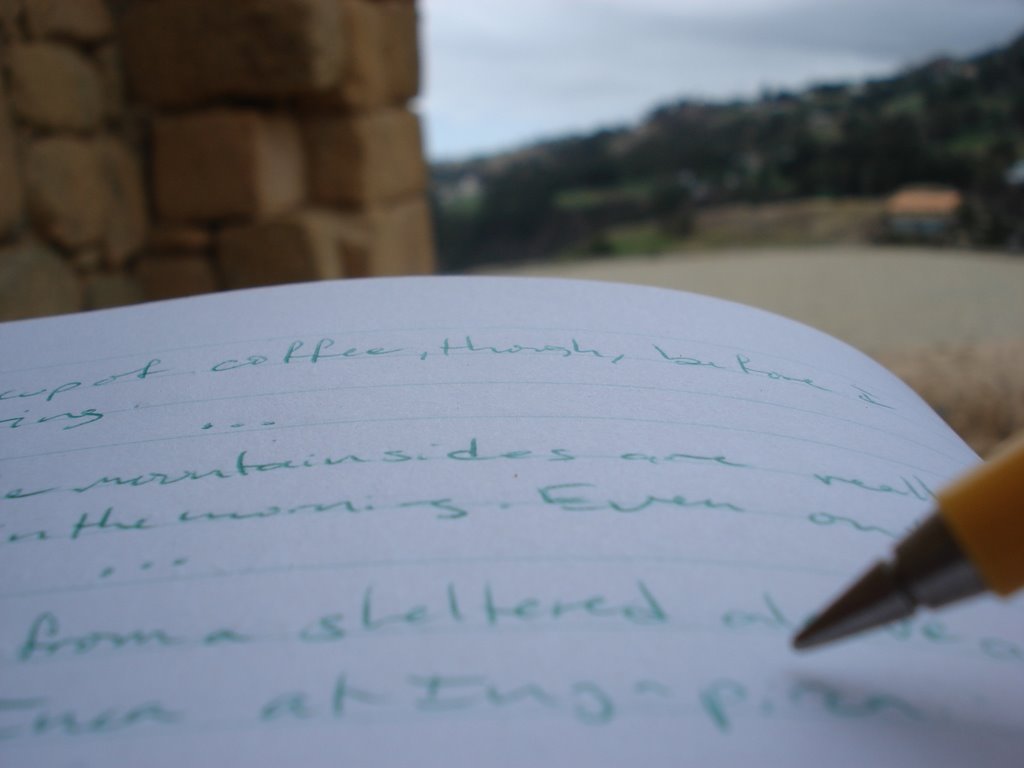 cup of coffee, though, before a
ing ...
e mountainsides are really
in the morning. Even on
...
from a sheltered alcove a
Inca at Ingapirca